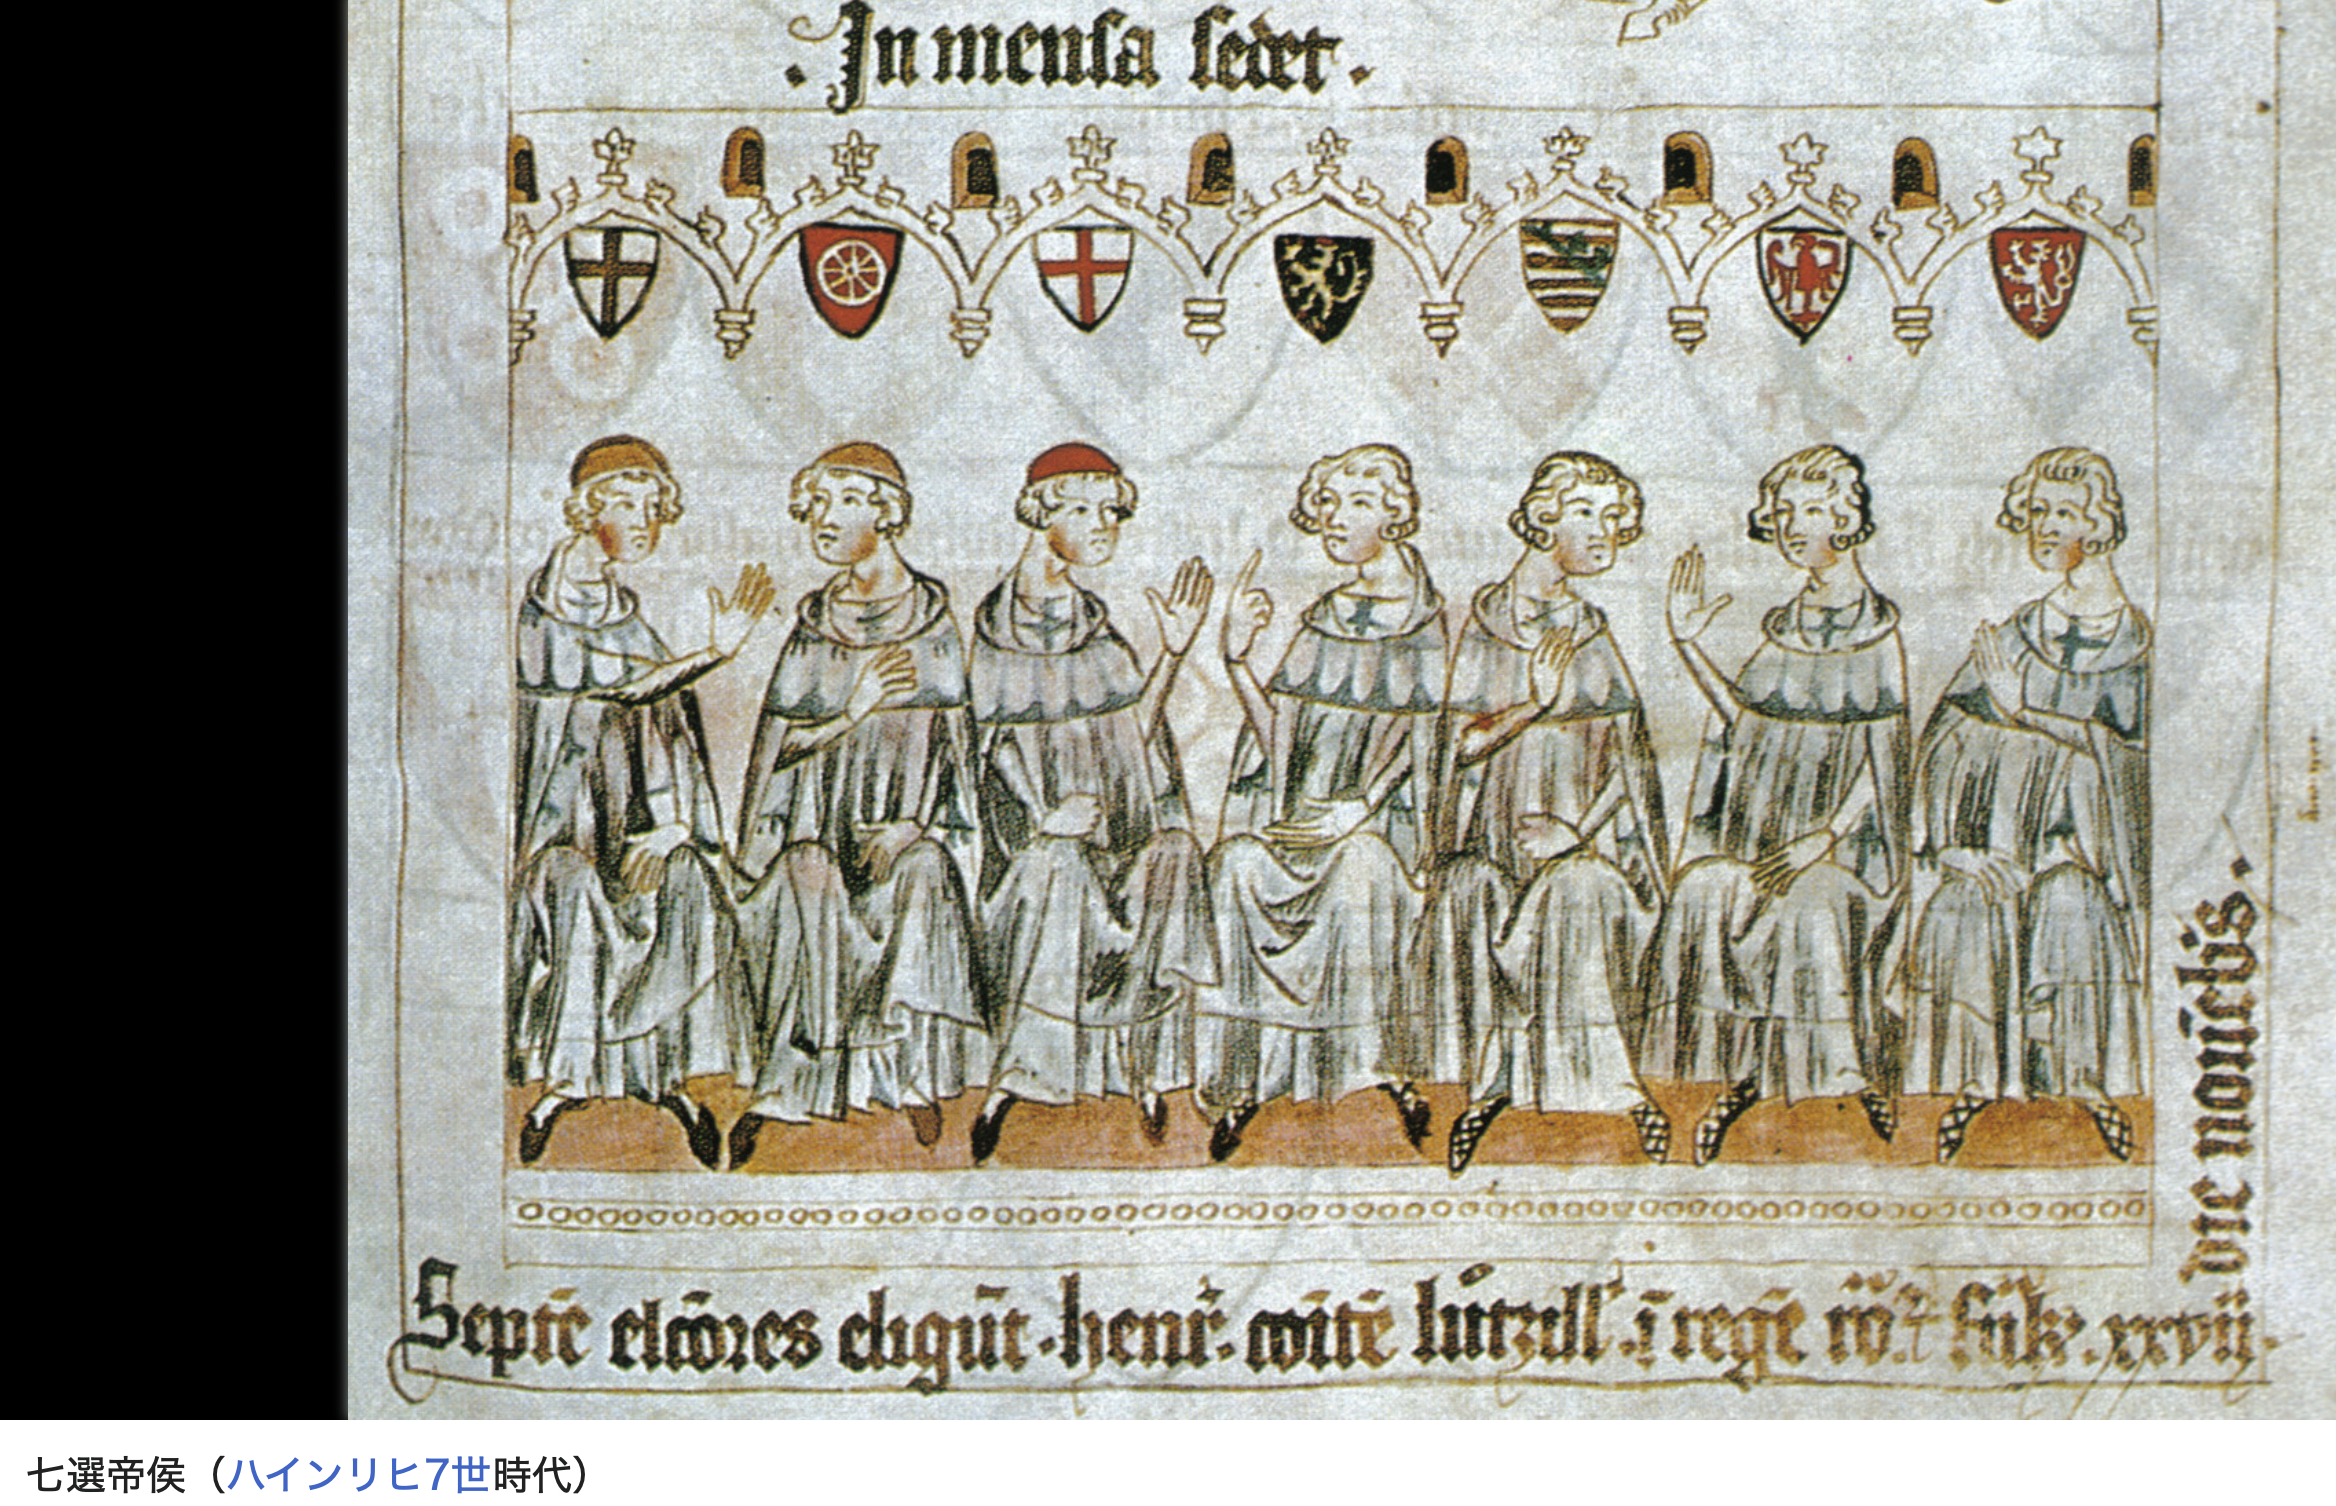 In mensa sedet.
Septē elcōres eligūt. henr̄. cōitē lutzill' ī regē rō
xxvii
die nouēbis.
七選帝侯（ハインリヒ7世時代）